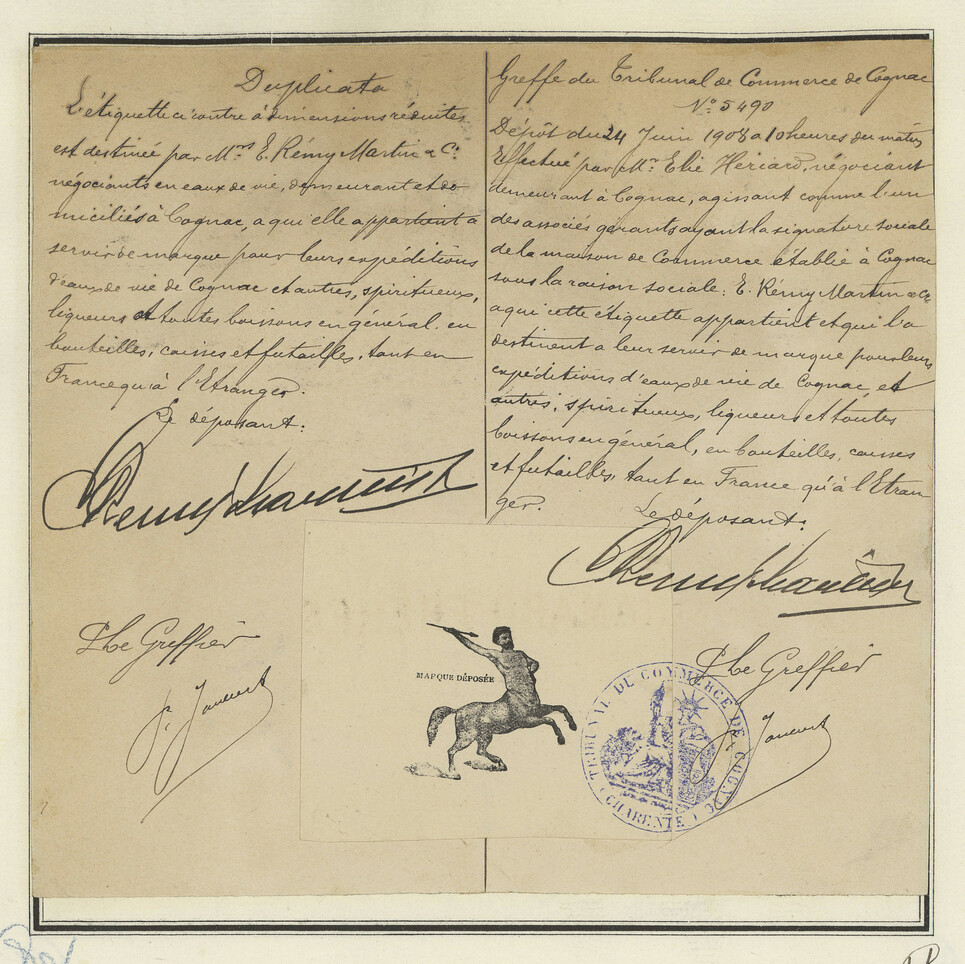 Duplicata
L'étiquette ci contre à dimensions réduites
est destinée par Mrs E. Rémy Martin & Co.
négociants en eaux de vie, demeurant et do
miciliés à Cognac, a qui elle appartient a
servir de marque pour leurs expéditions
d'eaux de vie de Cognac et autres, spiritueux,
liqueurs et toutes boissons en général. en
bouteilles, caisses et futailles, tant en
France qu'à l'Etranger.
Le déposant:
Remy Martin
Le Greffier
Greffe du Tribunal de Commerce de Cognac
No 5490
Dépôt du 24 Juin 1908 a 10 heures du matin
Effectué par Mr Elie Hériard, négociant
demeurant à Cognac, agissant comme l'un
des associés gérants ayant la signature sociale
de la maison de Commerce établie à Cognac
sous la raison sociale: E. Rémy Martin & Co
a qui cette étiquette appartient et qui l'a
destinent a leur servir de marque pour leurs
expéditions d'eaux de vie de Cognac, et
autres, spiritueux, liqueurs et toutes
boissons en général, en bouteilles, caisses
et futailles, tant en France qu'à l'Etran
ger.
Le déposant:
Remy Martin
Le Greffier
MARQUE DÉPOSÉE
TRIBUNAL DE COMMERCE DE COGNAC
(CHARENTE)